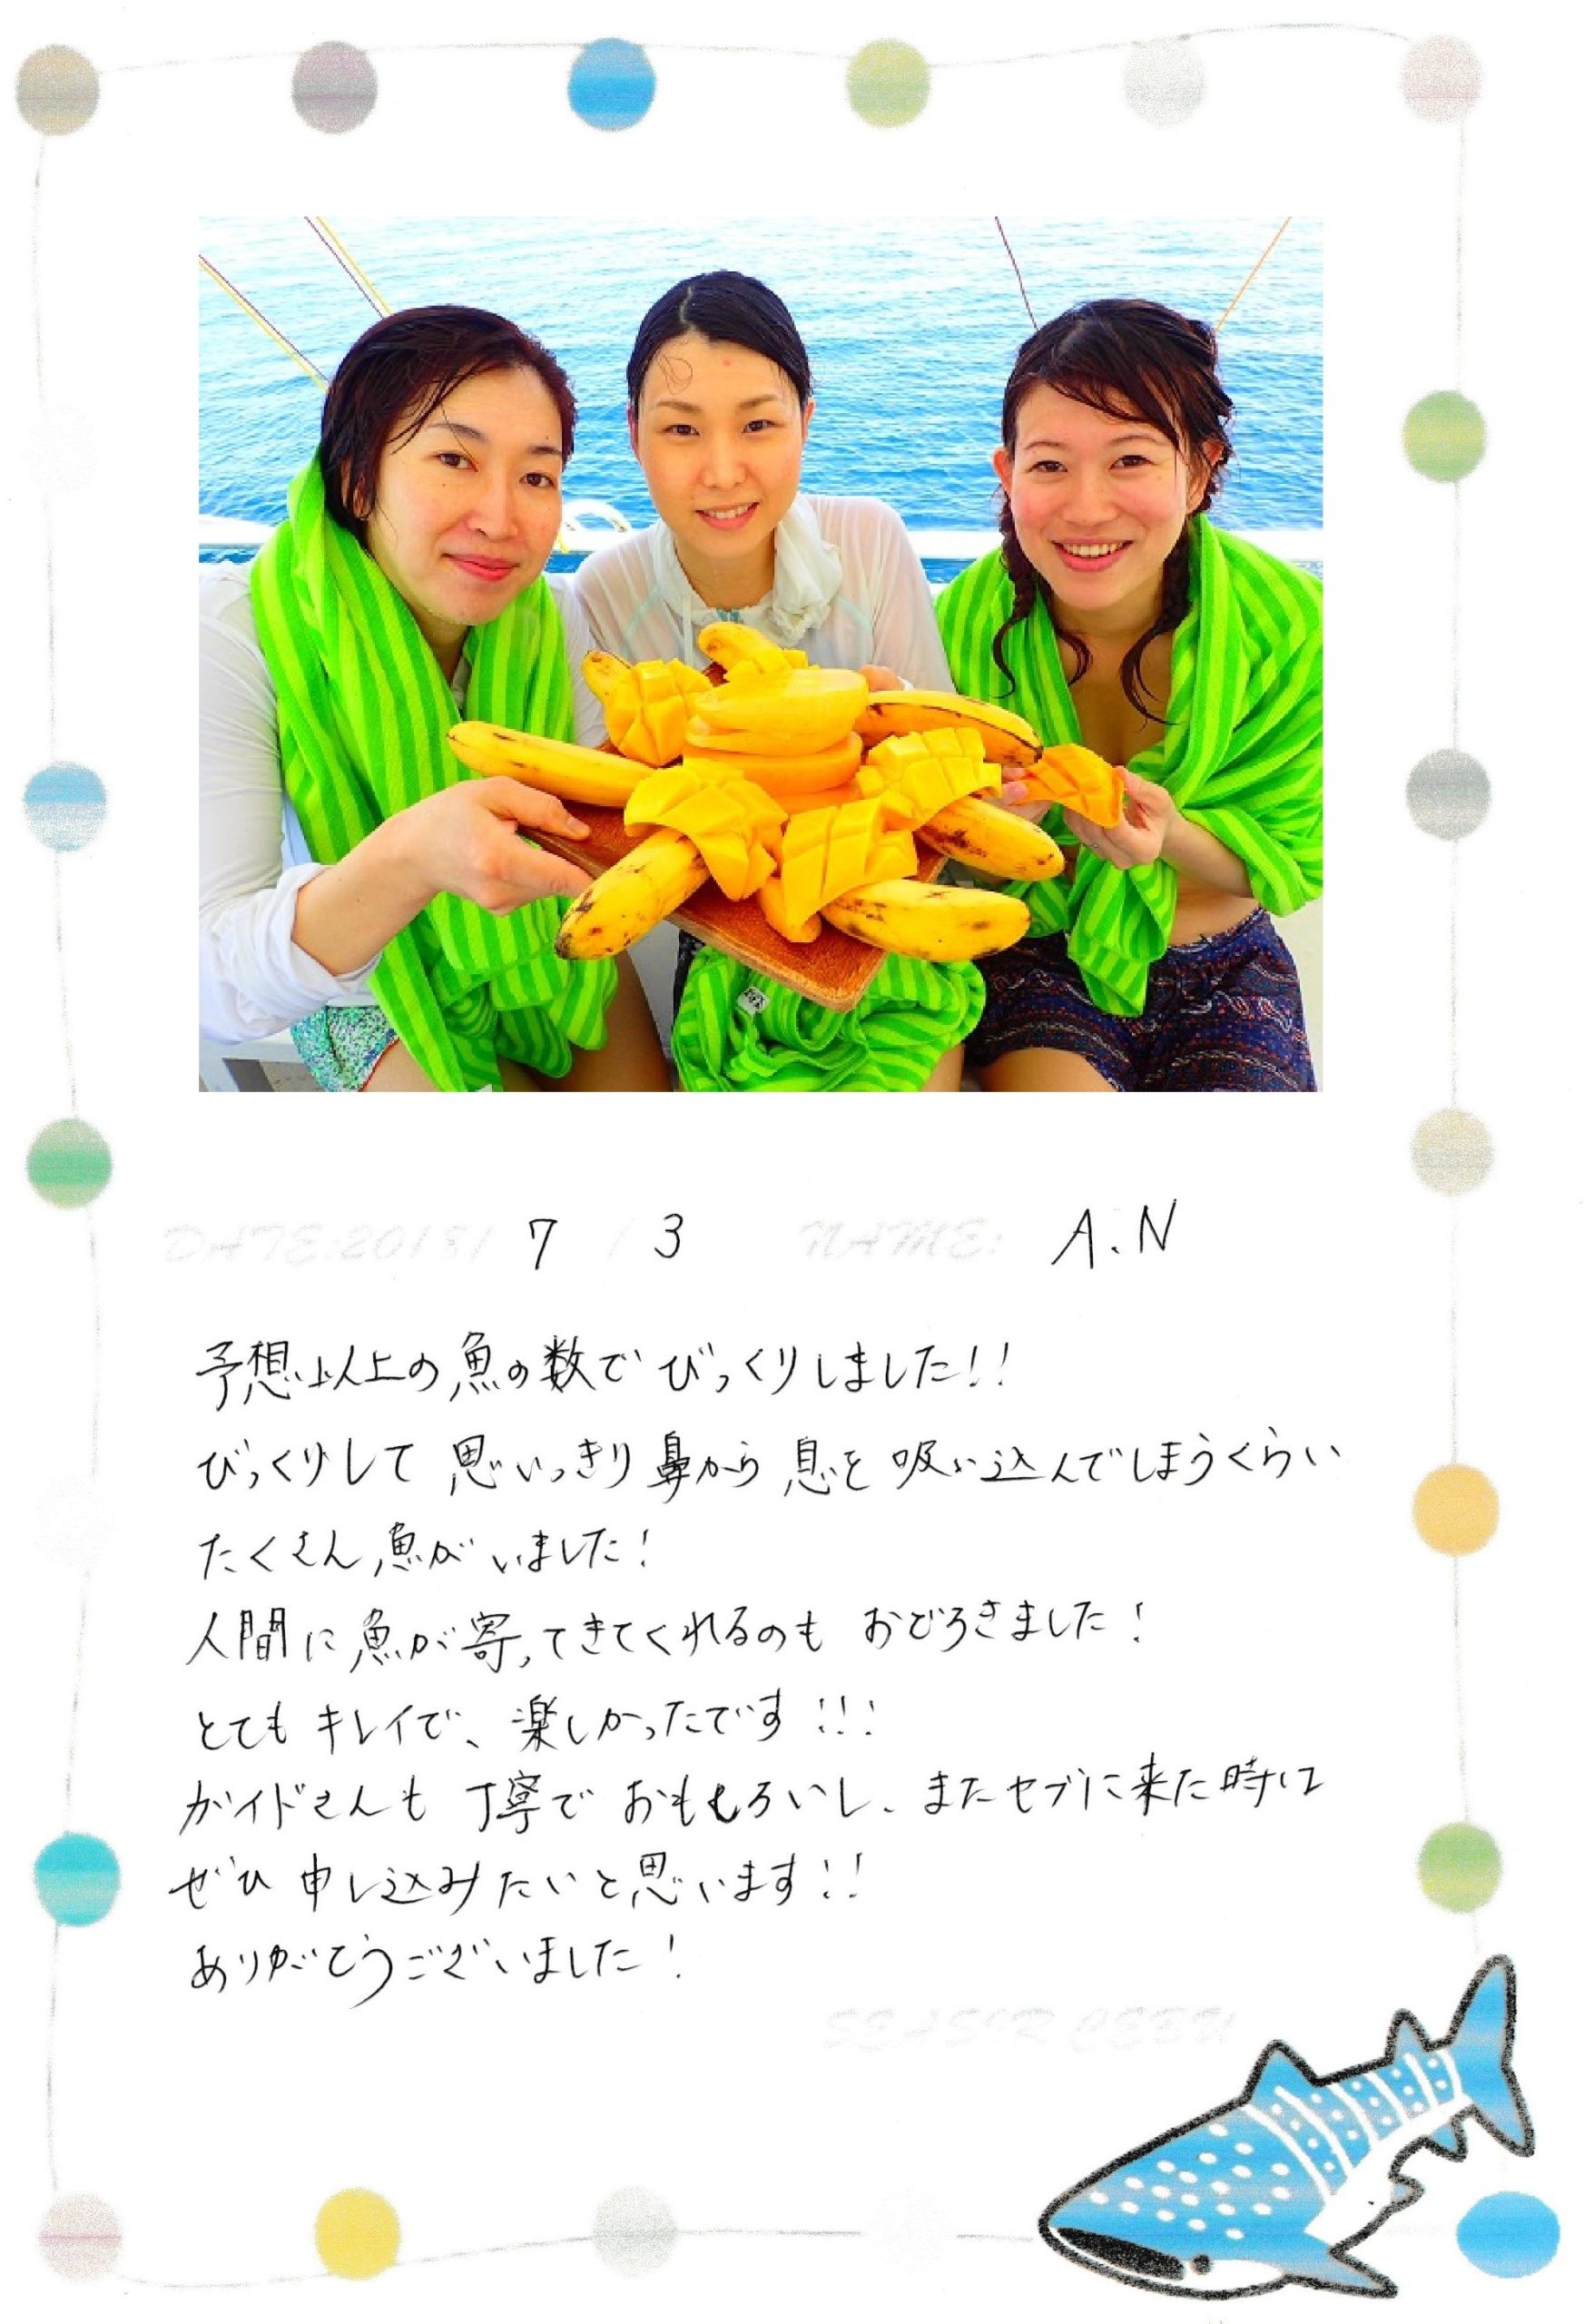 DATE:2018/ 7 / 3 NAME: A.N
予想以上の魚の数でびっくりしました!!
びっくりして 思いっきり 鼻から 息を 吸い込んでしまうくらい
たくさん魚がいました!
人間に魚が寄ってきてくれるのも おどろきました!
とても キレイで、楽しかったです!!!
ガイドさんも 丁寧で おももろいし、またセブに来た時は
ぜひ 申し込みたいと思います!!
ありがとうございました!
SEASIR CEBU